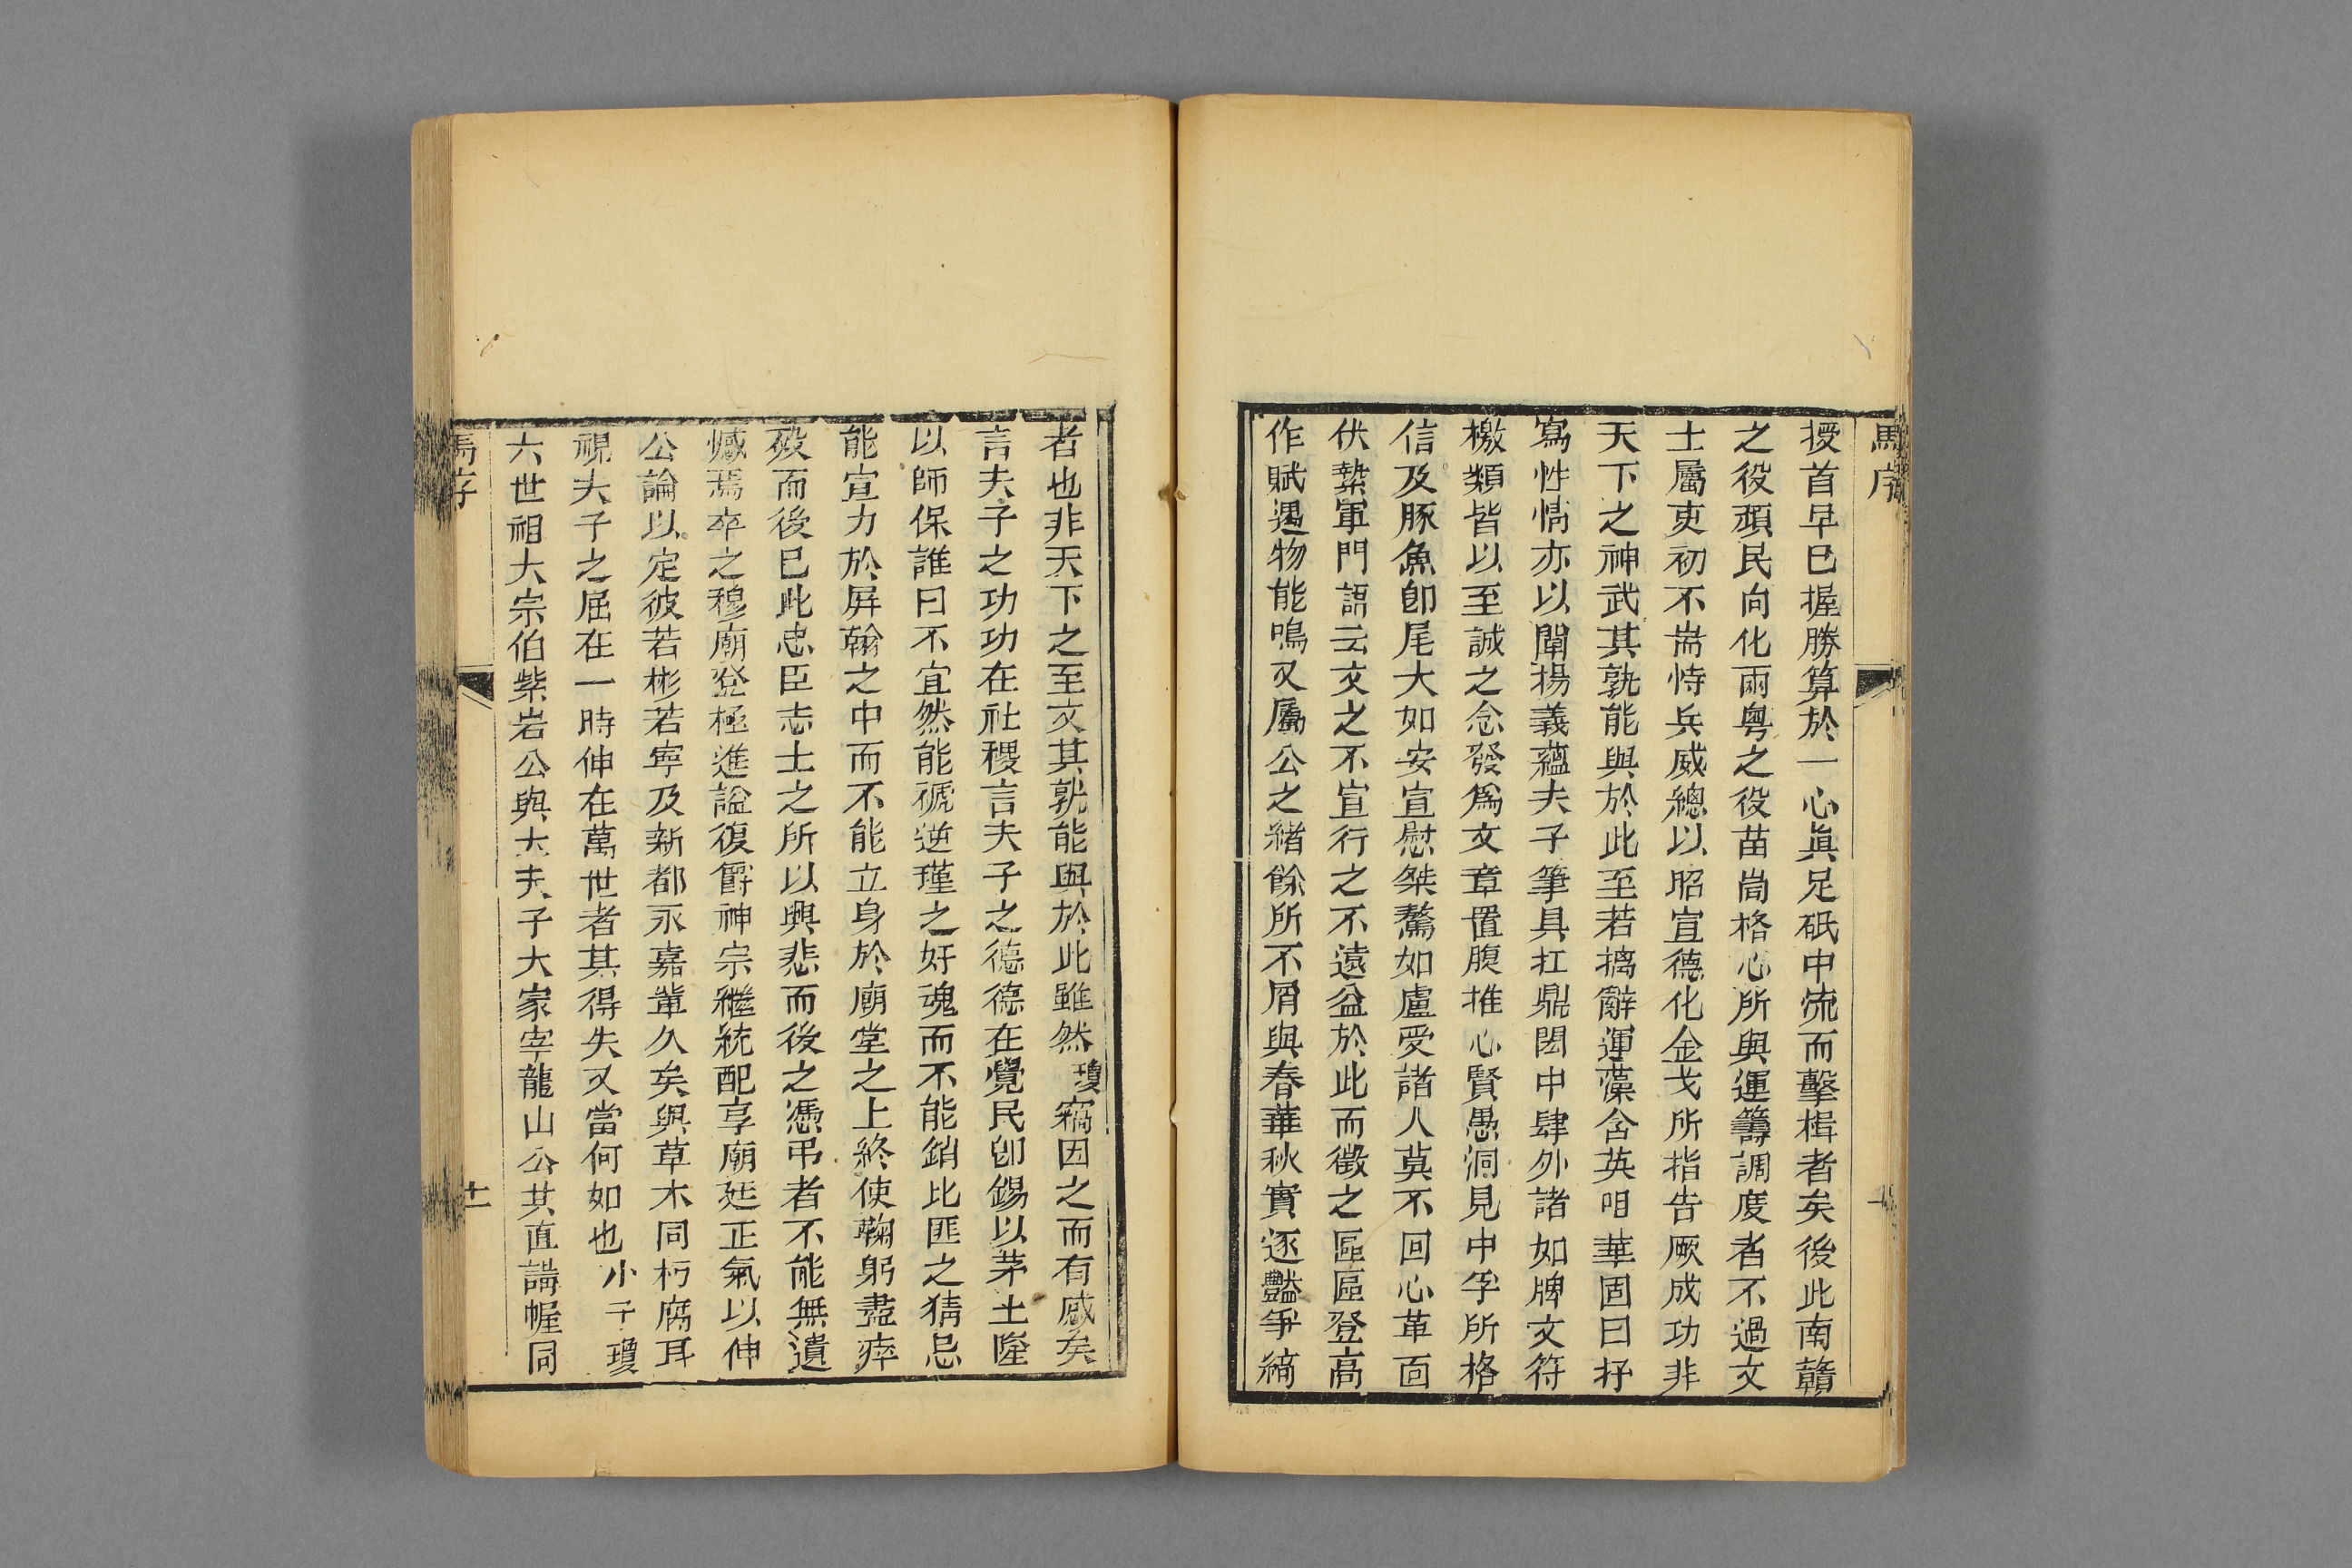 馬序
擾首早已握勝算於一心眞足砥中流而擊楫者矣後此南贛
之役頑民向化兩粤之役苗峝格心所與運籌調度者不過文
士屬吏初不耑恃兵威總以昭宣德化金戈所指告厥成功非
天下之神武其孰能與於此至若摛辭運藻含英咀華固曰抒
寫性情亦以闡揚義蘊夫子筆具扛鼎閎中肆外諸如牌文符
檄類皆以至誠之念發爲文章置腹推心賢愚洞見中孚所格
信及豚魚卽尾大如安宣慰桀驁如盧受諸人莫不回心革面
伏槷軍門語云文之不宣行之不遠益於此而徵之區區登高
作賦遇物能鳴又屬公之緖餘所不屑與春華秋實逐豔爭䋣
者也非天下之至文其孰能與於此雖然瓊竊因之而有感矣
言夫子之功功在社稷言夫子之德德在覺民卽錫以茅土隆
以師保誰曰不宜然能褫逆瑾之奸魂而不能銷比匪之猜忌
能宣力於屛翰之中而不能立身於廟堂之上終使鞠躬盡瘁
歿而後已此忠臣志士之所以興悲而後之憑弔者不能無遺
憾焉卒之穆廟登極進謚復爵神宗繼統配享廟廷正氣以伸
公論以定彼若彬若寧及新都永嘉輩久矣與草木同朽腐耳
視夫子之屈在一時伸在萬世者其得失又當何如也小子瓊
六世祖大宗伯紫岩公與太夫子大冢宰龍山公共直講幄同
馬序
十一